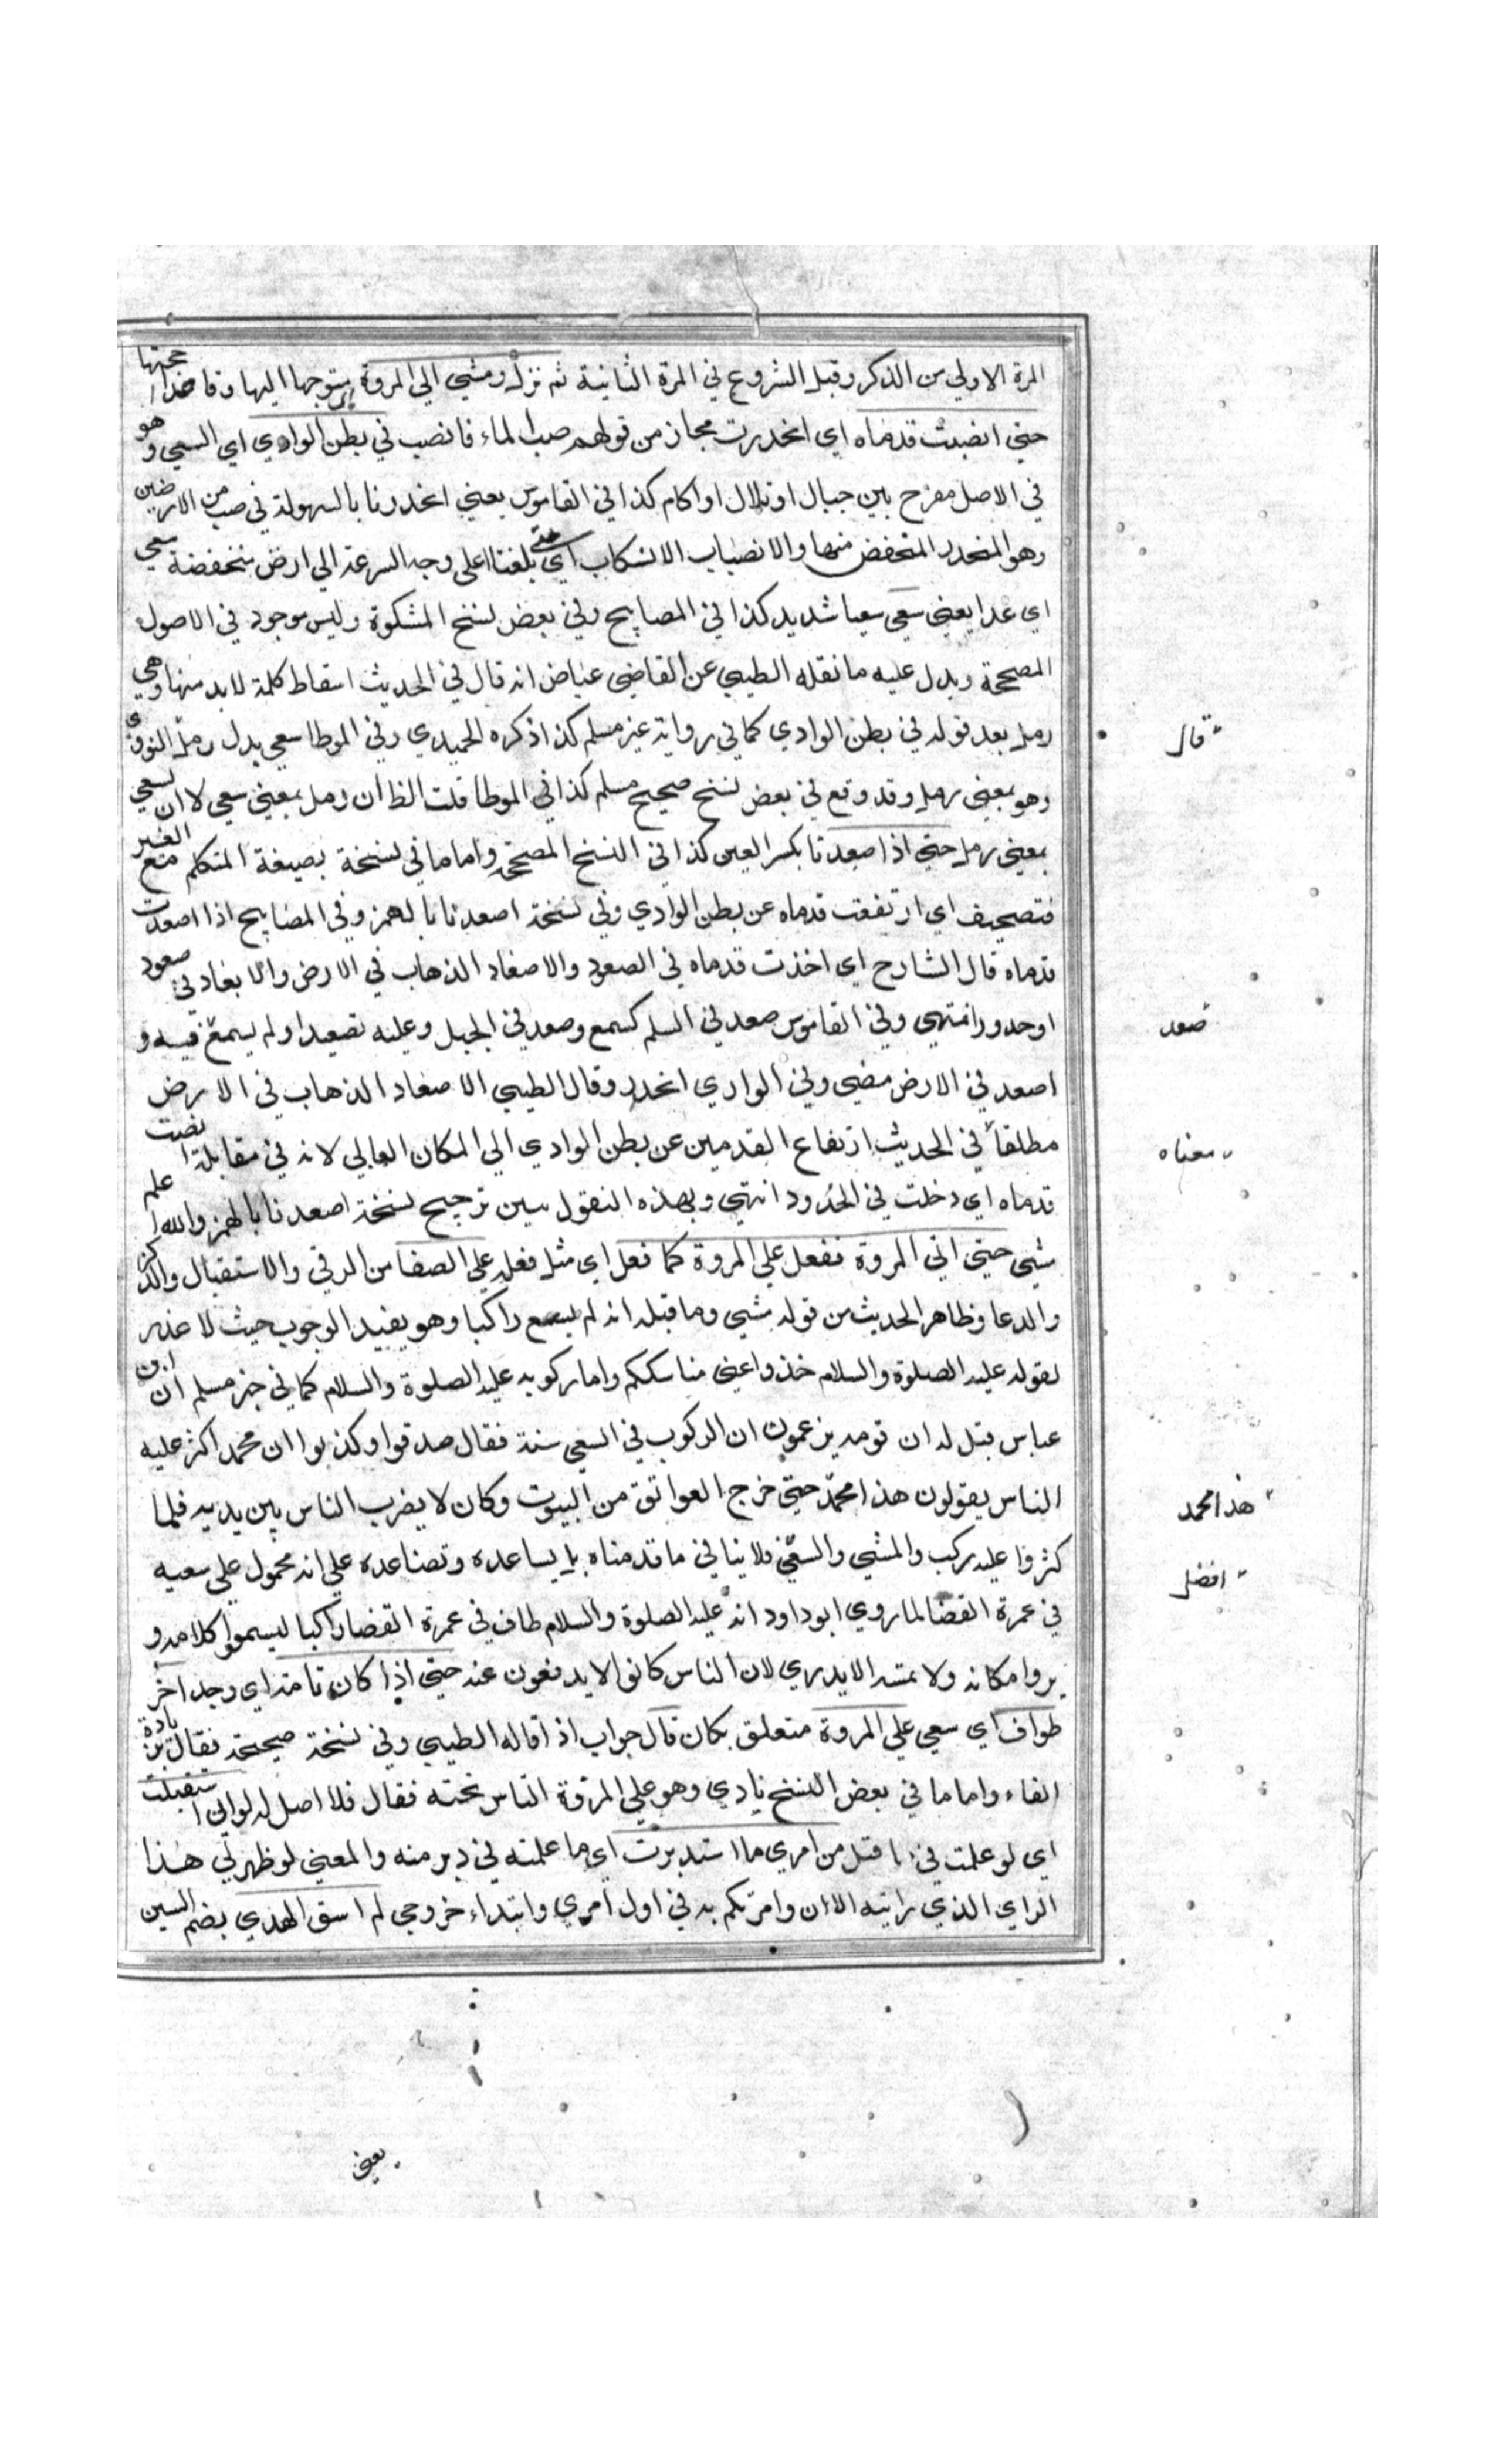 المرة الاولي من الذكر وقبل الشروع في المرة الثانية ثم نزل ومشي الي المروة متوجها اليها وقاصدا جهتها
حتي انصبت قدماه اي انحدرت مجاز من قولهم صب الماء فانصب في بطن الوادي اي السعي وهو
في الاصل مفرح بين جبال او تلال او اكام كذا في القاموس يعني انحدرنا بالسهولة في صبب من الارضين
وهو المنحدر المنخفض منها والانصباب الانسكاب اي حتي بلغتا علي وجه السرعة الي ارض منخفضة سعي
اي عدا يعني سعي سعيا شديد كذا في المصابيح وفي بعض نسخ المشكوة وليس موجود في الاصول
المصححة ويدل عليه ما نقله الطيبي عن القاضي عياض انه قال في الحديث اسقاط كلمة لابد منها وهي
رمل بعد قوله في بطن الوادي كما في رواية غير مسلم كذا ذكره الحميدي وفي الموطا سعي بدل رمل النووي
قال
وهو بمعني رمل وقد وقع في بعض نسخ صحيح مسلم كذا في الموطا قلت الظ ان رمل بمعني سعي لا ان سعي
بمعني رمل حتي اذا صعدتا بكسر العين كذا في النسخ المصححة واما ما في نسخة بصيغة المتكلم مع الغير
فتصحيف اي ارتفعت قدماه عن بطن الوادي وفي نسخة اصعدتا بالهمز وفي المصابيح اذا اصعدت
قدماه قال الشارح اي اخذت قدماه في الصعود والاصعاد الذهاب في الارض والابعاد في صعود
او حدور انتهي وفي القاموس صعد في السلم كسمع وصعد في الجبل وعليه تصعيدا ولم يسمع فيه و
صعد
اصعد في الارض مضي وفي الوادي انحدر وقال الطيبي الاصعاد الذهاب في الارض
مطلقا في الحديث ارتفاع القدمين عن بطن الوادي الي المكان العالي لانه في مقابلة انصبت
معناه
قدماه اي دخلت في الحدود انتهي وبهذه النقول تبين ترجيح نسخة اصعدتا بالهمز والله اعلم
مشي حتي اتي المروة ففعل علي المروة كما فعل اي مثل فعله علي الصفا من الرقي والاستقبال والذكر
والدعا وظاهر الحديث من قوله مشي وما قبله انه لم يسع راكبا وهو يفيد الوجوب حيث لا عذر
لقوله عليه الصلوة والسلام خذوا عني مناسككم واما ركوبه عليه الصلوة والسلام كما في خبر مسلم ان ابن
عباس قيل له ان قومه يزعمون ان الركوب في السعي سنة فقال صدقوا وكذبوا ان محمد اكثر عليه
الناس يقولون هذا محمد حتي خرج العواتق من البيوت وكان لا يضرب الناس بين يديه فلما
هذا محمد
كثروا عليه ركب والمشي والسعي فلا ينافي ما قدمناه بل يساعده وتصاعده علي انه محمول علي سعيه
افضل
في عمرة القضا لما روي ابو داود انه عليه الصلوة والسلام طاف في عمرة القضا راكبا ليسمعوا كلامه و
يروا مكانه ولا تمسه الايدي لان الناس كانوا لا يدفعون عنه حتي اذا كان تامة اي وجد اخر
طواف اي سعي علي المروة متعلق بكان قال جواب اذا قاله الطيبي وفي نسخة صحيحة فقال بزيادة
الفاء واما ما في بعض النسخ نادي وهو علي المروة الناس تحته فقال فلا اصل له لو اني استقبلت
اي لو علمت في ما قبل من امري ما استدبرت اي ما علمته في دبر منه والمعني لو ظهر لي هذا
الراي الذي رايته الان وامرتكم به في اول امري وابتداء خروجي لم اسق الهدي بضم السين
يعني